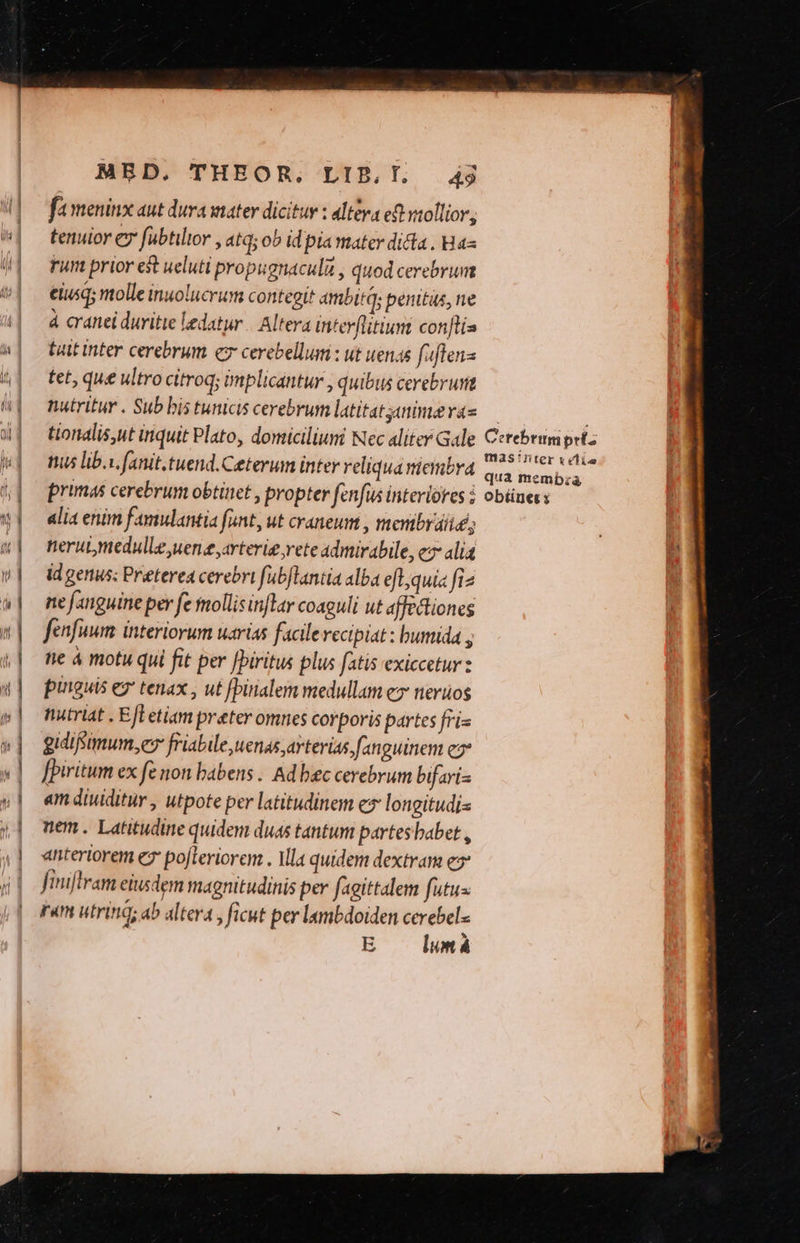 MED. THEOR. LIB. I. 49
ſa meninx aut dura mater dicitur : altera eſt mollior,
tenuior & ſubtilior , atq; ob id pia mater dicta . Ha=
rum prior eſt ueluti propugnaculū , quod cerebrum
eiusq; molle inuolucrum contegit ambitq; penitus, ne
à cranei duritie lædatur . Altera interſtitium conſti=
tuit inter cerebrum & cerebellum : ut uenas ſuſten=
tet, quæ ultro citroq; implicantur , quibus cerebrum
nutritur . Sub his tunicis cerebrum latitat, animæ ra=
tionalis, ut inquit Plato, domicilium Nec aliter Gale
nus lib.1. ſanit. tuend. Cæterum inter reliqua membra
primas cerebrum obtinet , propter ſenſus interiores ;
alia enim famulantia ſunt, ut craneum , membranæ,
nerui, medullæ, uenæ, arteriæ, rete admirabile, & alia
id genus: Præterea cerebri ſubſtantia alba eſt, quia ſi=
ne ſanguine per ſe mollis inſtar coaguli ut affectiones
ſenſuum interiorum uarias facile recipiat : humida ,
ne à motu qui fit per ſpiritus plus ſatis exiccetur :
pinguis & tenax , ut ſpinalem medullam & neruos
nutriat . Eſt etiam præter omnes corporis partes fri=
gidiſsimum, & friabile, uenas, arterias, ſanguinem &
ſpiritum ex ſe non habens . Ad hæc cerebrum bifari=
am diuiditur , utpote per latitudinem & longitudi=
nem . Latitudine quidem duas tantum partes habet ,
anteriorem & poſteriorem . Illa quidem dextram &
ſiniſtram eiusdem magnitudinis per ſagittalem ſutu=
ram utrinq; ab altera , ſicut per lambdoiden cerebel=
E lum à
Cerebrum pri=
mas inter reli=
qua membra
obtinet: